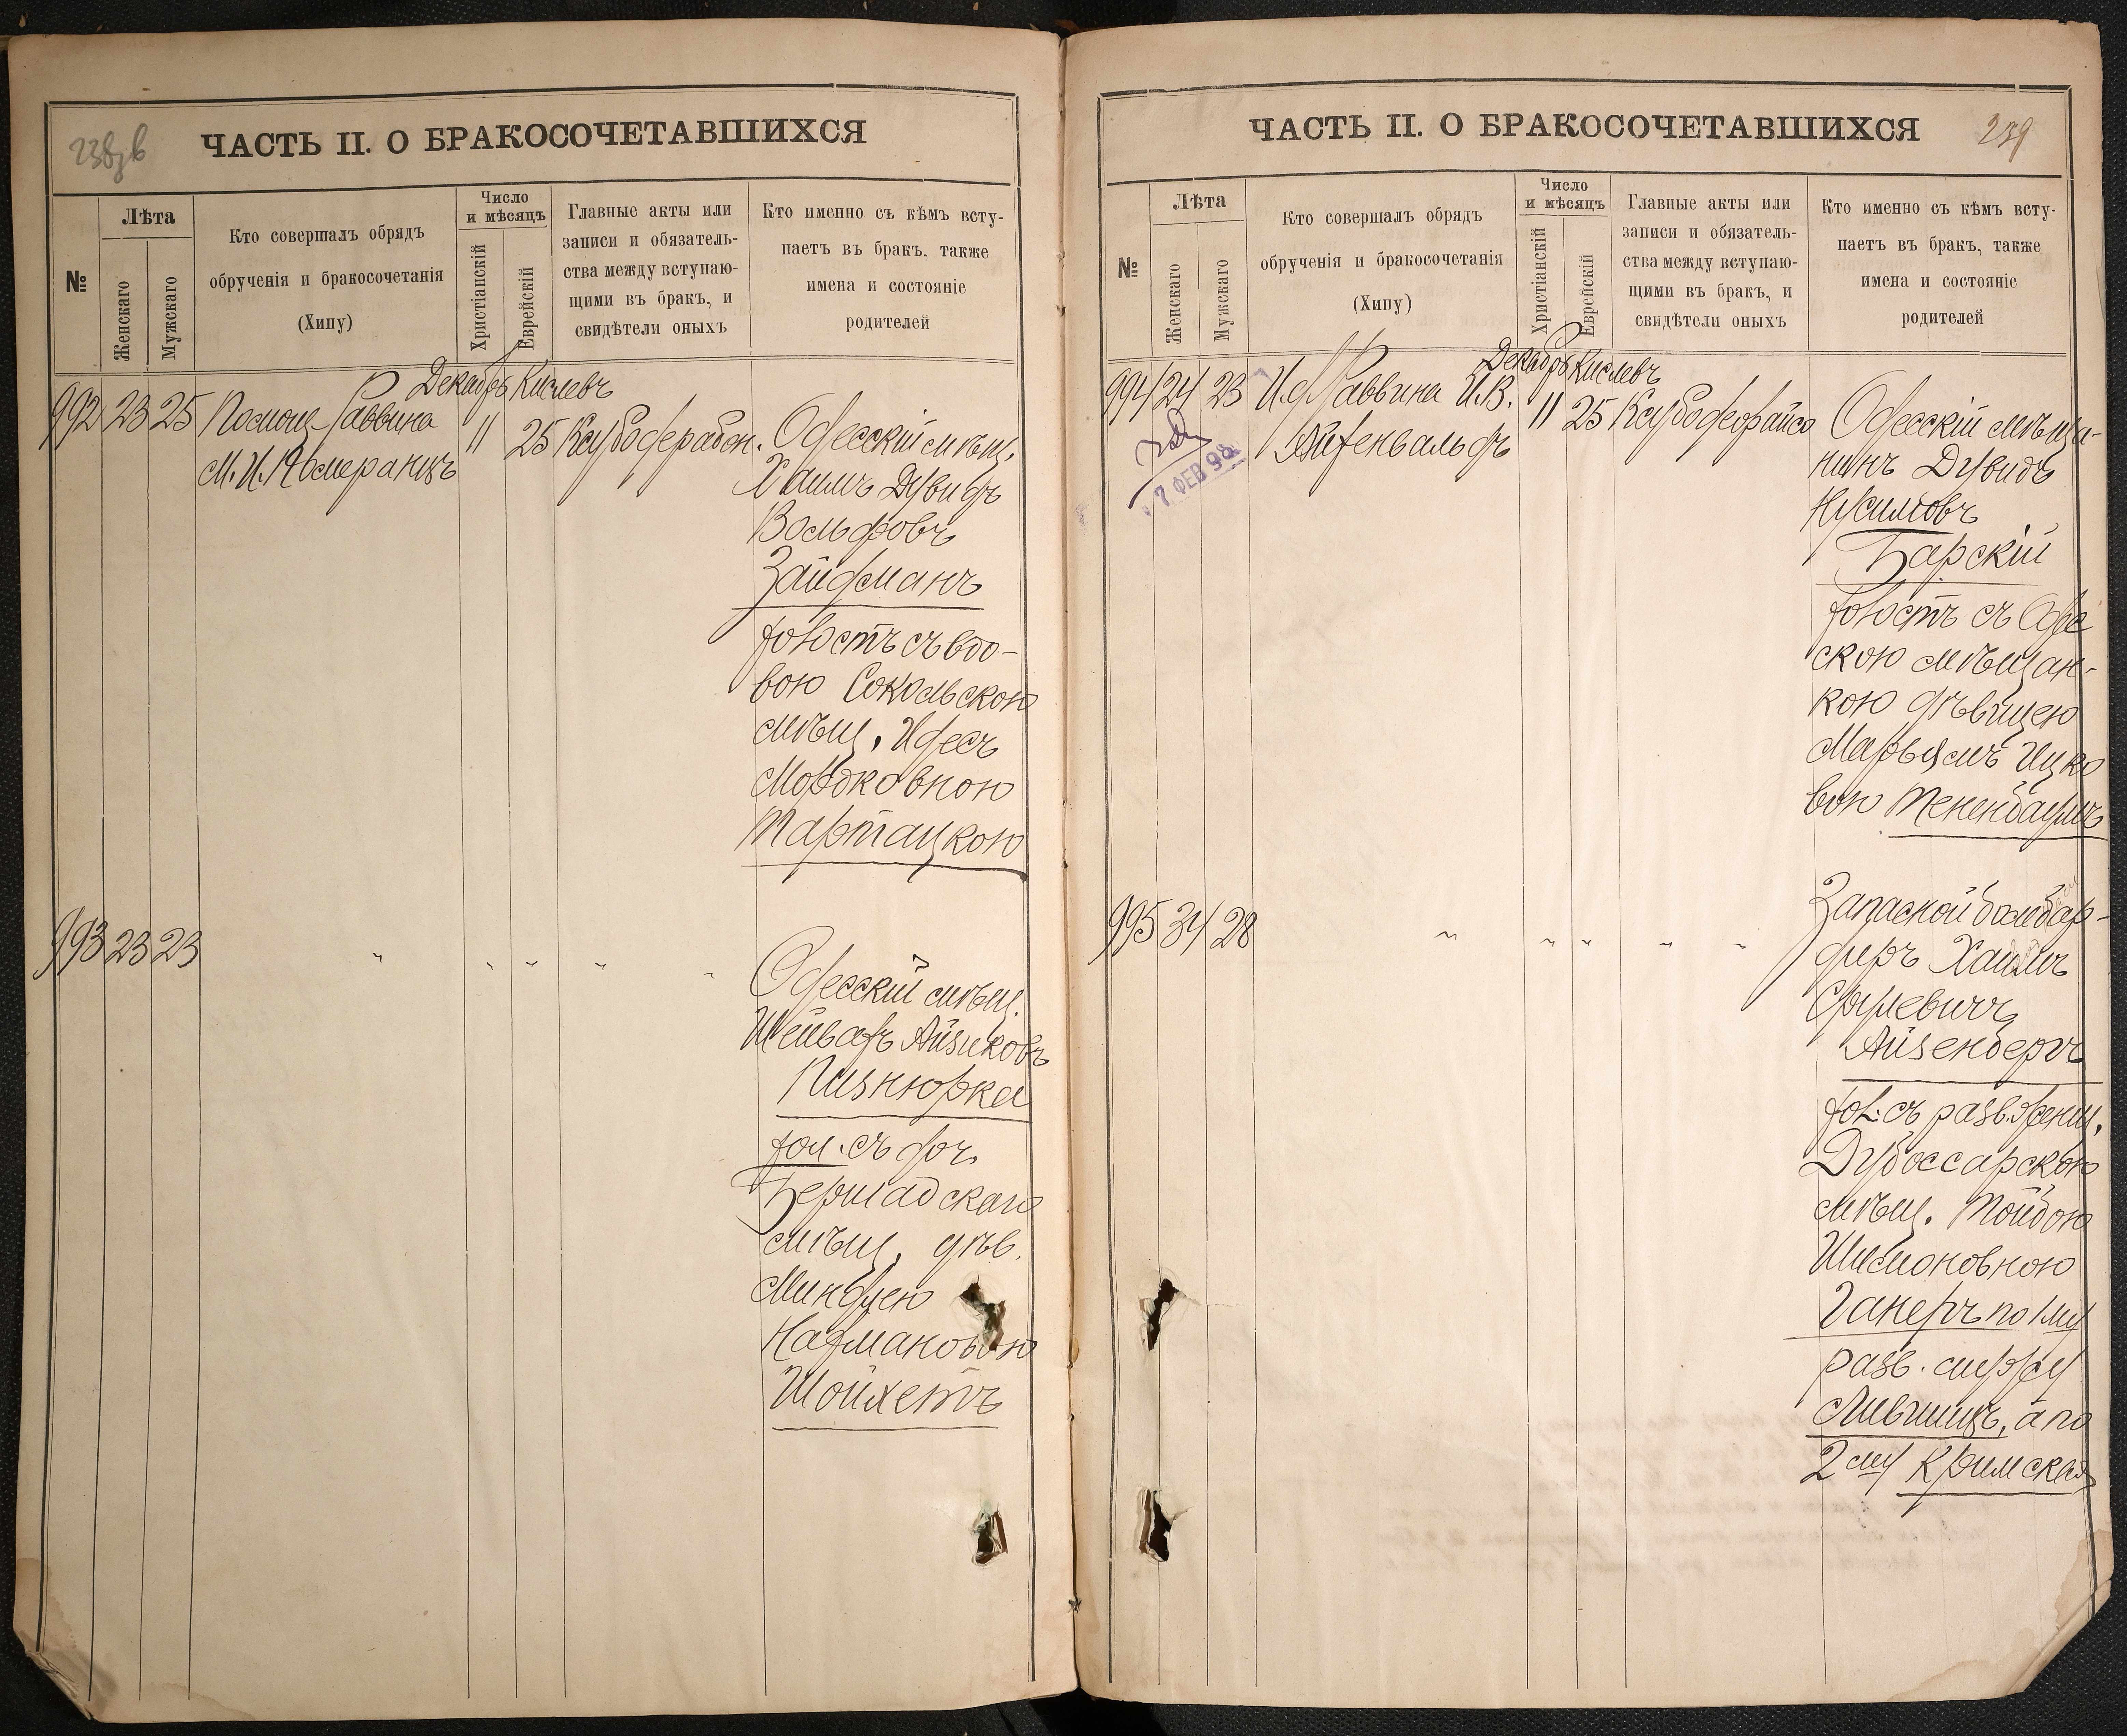 238об
ЧАСТЬ II. О БРАКОСОЧЕТАВШИХСЯ
№
Лѣта
Женскаго
Мужскаго
Кто совершалъ обрядъ
обрученія и бракосочетанія
(Хипу)
Число
и мѣсяцъ
Христіанскій
Еврейскій
Главные акты или
записи и обязатель-
ства между вступаю-
щими въ бракъ, и
свидѣтели оныхъ
Кто именно съ кѣмъ всту-
паетъ въ бракъ, также
имена и состояніе
родителей
Декабрь Кислевъ
992 23 25 Помощ. Раввина 11 25
М. И. Померанцъ
Одесскій мѣщ.
Хаимъ Дувидъ
Вольфовъ
Зайдманъ
холостъ съ вдо-
вою Сокольскою
мѣщ. Идесъ
Мордковною
Тартацкою
993 23 23 " " " " "
Одесскій мѣщ.
Шейвахъ Айзиковъ
Пизнюрка
хол. съ доч.
Бершадскаго
мѣщ. дѣв.
Миндлею
Нахмановою
Шойхетъ
239
ЧАСТЬ II. О БРАКОСОЧЕТАВШИХСЯ
№
Лѣта
Женскаго
Мужскаго
Кто совершалъ обрядъ
обрученія и бракосочетанія
(Хипу)
Число
и мѣсяцъ
Христіанскій
Еврейскій
Главные акты или
записи и обязатель-
ства между вступаю-
щими въ бракъ, и
свидѣтели оныхъ
Кто именно съ кѣмъ всту-
паетъ въ бракъ, также
имена и состояніе
родителей
Декабрь Кислевъ
994 24 23 И. д. Раввина И. В. 11 25
Айхенвальдъ
7 ФЕВ 98
Одесскій мѣща-
нинъ Дувидъ
Нусимовъ
Барскій
холостъ съ Одес
скою мѣщан-
кою дѣвицею
Марьямъ Ицко
вою Тененбаумъ
995 34 28 " " " " "
Запасной бомбар-
диръ Хаимъ
Срулевичъ
Айзенбергъ
хол. съ разв. женщ.
Дубоссарскою
мѣщ. Тойбою
Шимоновною
Ганеръ по 1му
разв. мужу
Лившицъ, а по
2му Кримская